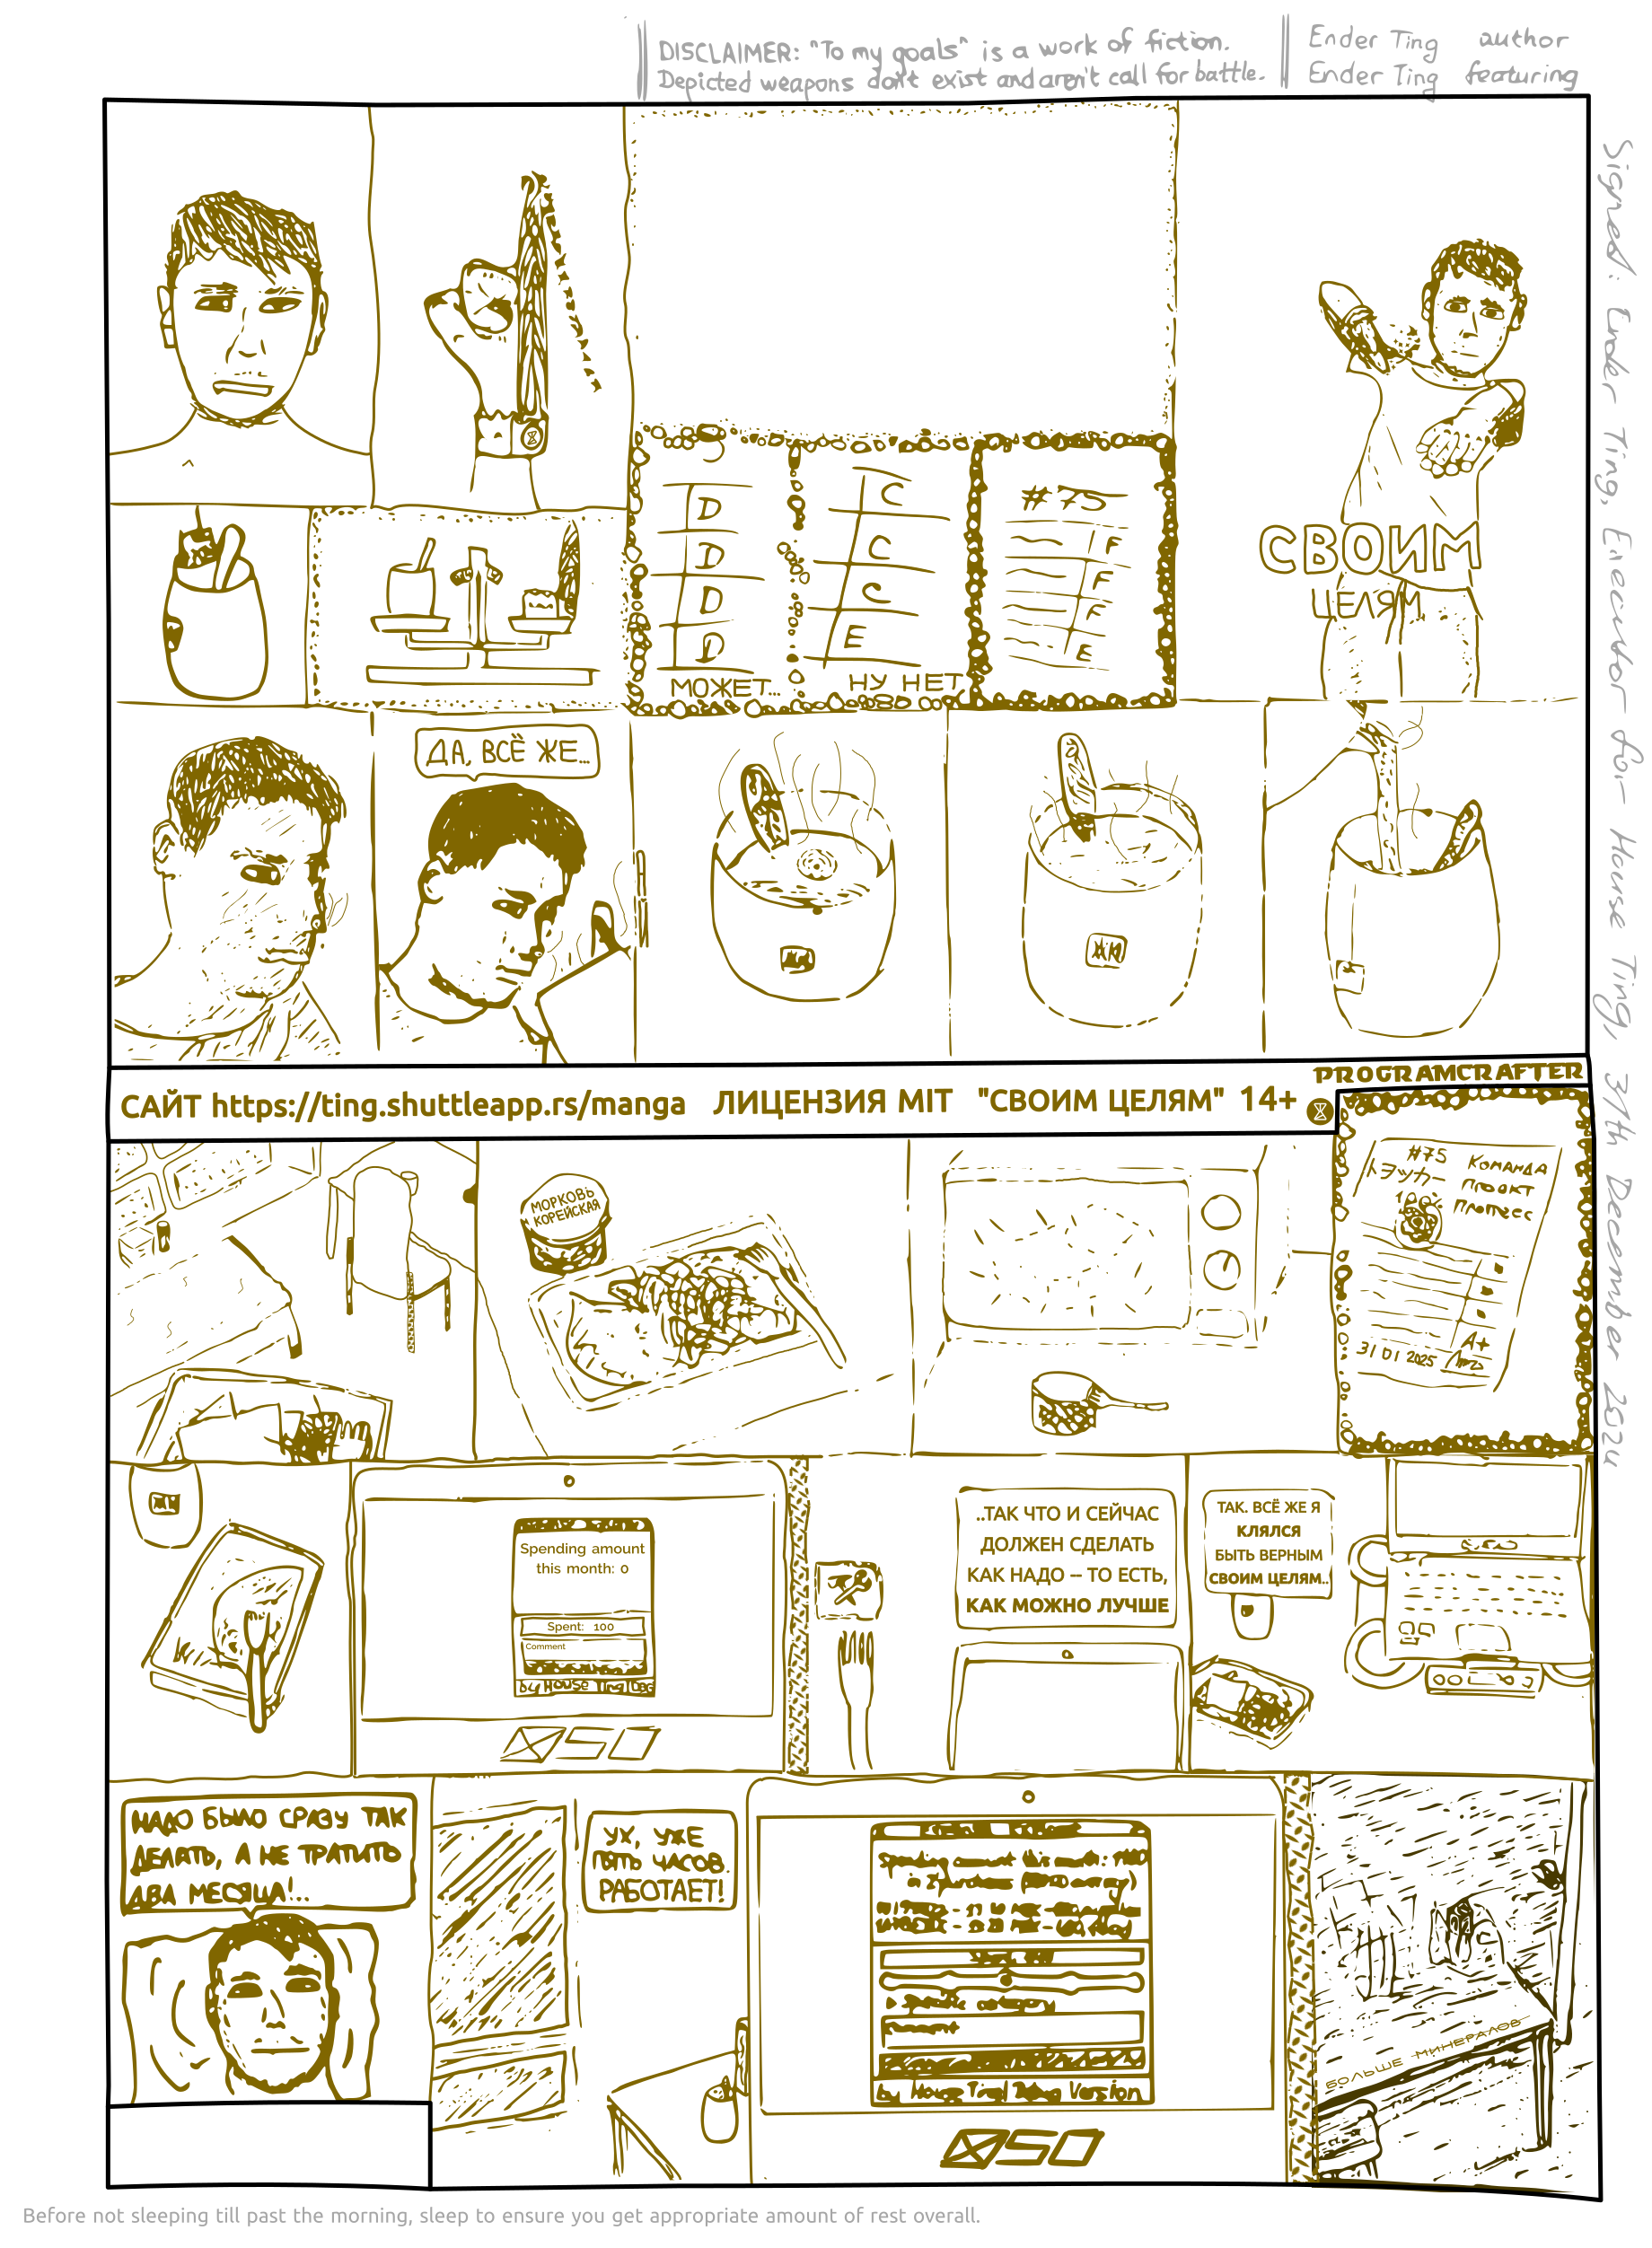 DISCLAIMER: "To my goals" is a work of fiction.
Depicted weapons don't exist and aren't call for battle.
Ender Ting author
Ender Ting featuring
Signed: Ender Ting, Executor for House Ting, 31th December 2024
D
D
D
D
МОЖЕТ...
C
C
C
E
НУ НЕТ
#75
F
F
F
E
СВОИМ
ЦЕЛЯМ
ДА, ВСЁ ЖЕ...
САЙТ https://ting.shuttleapp.rs/manga ЛИЦЕНЗИЯ MIT "СВОИМ ЦЕЛЯМ" 14+
PROGRAMCRAFTER
МОРКОВЬ
КОРЕЙСКАЯ
#75 КОМАНДА
100%
A+
31 01 2025
Spending amount
this month: 0
Spent: 100
Comment
by House Ting
..ТАК ЧТО И СЕЙЧАС
ДОЛЖЕН СДЕЛАТЬ
КАК НАДО – ТО ЕСТЬ,
КАК МОЖНО ЛУЧШЕ
ТАК. ВСЁ ЖЕ Я
КЛЯЛСЯ
БЫТЬ ВЕРНЫМ
СВОИМ ЦЕЛЯМ..
НАДО БЫЛО СРАЗУ ТАК
ДЕЛАТЬ, А НЕ ТРАТИТЬ
ДВА МЕСЯЦА!..
УХ, УЖЕ
ПЯТЬ ЧАСОВ.
РАБОТАЕТ!
Spending amount this month:
by House Ting Version
БОЛЬШЕ МИНЕРАЛОВ
Before not sleeping till past the morning, sleep to ensure you get appropriate amount of rest overall.